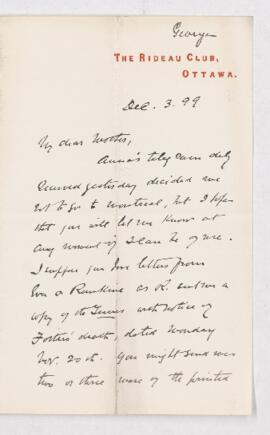 George
THE RIDEAU CLUB,
OTTAWA.
Dec. 3. 99
My dear Mother,
Anna's telegram duly
received yesterday decided me
not to go to Montreal, but I hope
that you will let me know at
any moment if I can be of use.
I suppose you have letters from
Eva & Rankine as R. sends a
copy of the Times with notice of
Foster's death, dated Monday
Nov. 20th. You might send me
two or three more of the printed